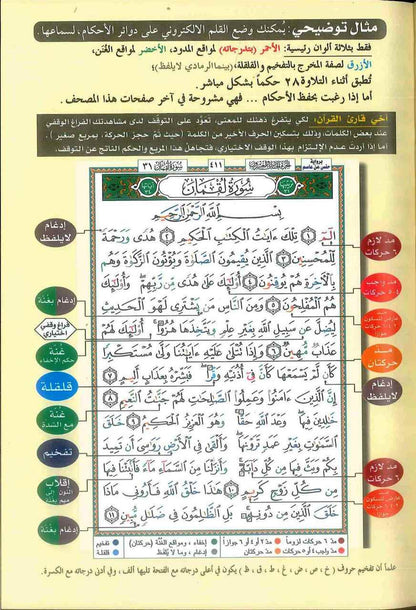 مثال توضيحي : يُمكنك وضع القلم الالكتروني على دوائر الأحكام، لسماعها.
فقط بثلاثة ألوان رئيسية: الأحمر (بتدرجاته) لمواقع المدود، الأخضر لمواقع الغُنَن،
الأزرق لصفة المخرج بالتفخيم والقلقلة، (بينما الرمادي لا يلفظ)
تُطبق أثناء التلاوة ٢٨ حكماً بشكل مباشر.
أما إذا رغبت بحفظ الأحكام ... فهي مشروحة في آخر صفحات هذا المصحف.
أخي قارئ القرآن: لكي يتفرغ ذهنك للمعنى، تعوّد على التوقف لدى مشاهدتك الفراغ الوقفي
عند بعض الكلمات، وذلك بتسكين الحرف الأخير من الكلمة (حيث تمّ حجز الحركة، بمربع صغير).
أما إذا أردت عدم الإلتزام بهذا الوقف الاختياري، فتجاهل هذا المربع والحكم الناتج عن التوقف.
سُورَةُ لُقْمَان ٣١
٤١١
برواية حفص عن عاصم
سُورَةُ لُقْمَانَ
بِسْمِ اللَّهِ الرَّحْمَٰنِ الرَّحِيمِ
الٓمٓ ١ تِلْكَ ءَايَٰتُ ٱلْكِتَٰبِ ٱلْحَكِيمِ ٢ هُدًى وَرَحْمَةً
لِّلْمُحْسِنِينَ ٣ ٱلَّذِينَ يُقِيمُونَ ٱلصَّلَوٰةَ وَيُؤْتُونَ ٱلزَّكَوٰةَ وَهُم
بِٱلْءَاخِرَةِ هُمْ يُوقِنُونَ ٤ أُو۟لَٰٓئِكَ عَلَىٰ هُدًى مِّن رَّبِّهِمْ وَأُو۟لَٰٓئِكَ
هُمُ ٱلْمُفْلِحُونَ ٥ وَمِنَ ٱلنَّاسِ مَن يَشْتَرِى لَهْوَ ٱلْحَدِيثِ
لِيُضِلَّ عَن سَبِيلِ ٱللَّهِ بِغَيْرِ عِلْمٍ وَيَتَّخِذَهَا هُزُوًا أُو۟لَٰٓئِكَ لَهُمْ
عَذَابٌ مُّهِينٌ ٦ وَإِذَا تُتْلَىٰ عَلَيْهِ ءَايَٰتُنَا وَلَّىٰ مُسْتَكْبِرًا
كَأَن لَّمْ يَسْمَعْهَا كَأَنَّ فِىٓ أُذُنَيْهِ وَقْرًا فَبَشِّرْهُ بِعَذَابٍ أَلِيمٍ ٧
إِنَّ ٱلَّذِينَ ءَامَنُوا۟ وَعَمِلُوا۟ ٱلصَّٰلِحَٰتِ لَهُمْ جَنَّٰتُ ٱلنَّعِيمِ ٨
خَٰلِدِينَ فِيهَا وَعْدَ ٱللَّهِ حَقًّا وَهُوَ ٱلْعَزِيزُ ٱلْحَكِيمُ ٩ خَلَقَ
ٱلسَّمَٰوَٰتِ بِغَيْرِ عَمَدٍ تَرَوْنَهَا وَأَلْقَىٰ فِى ٱلْأَرْضِ رَوَٰسِىَ أَن تَمِيدَ
بِكُمْ وَبَثَّ فِيهَا مِن كُلِّ دَآبَّةٍ وَأَنزَلْنَا مِنَ ٱلسَّمَآءِ مَآءً فَأَنۢبَتْنَا فِيهَا
مِن كُلِّ زَوْجٍ كَرِيمٍ ١٠ هَٰذَا خَلْقُ ٱللَّهِ فَأَرُونِى مَاذَا
خَلَقَ ٱلَّذِينَ مِن دُونِهِۦ بَلِ ٱلظَّٰلِمُونَ فِى ضَلَٰلٍ مُّبِينٍ ١١
مد لازم ٦ حركات
مد واجب ٤-٥ حركات
مد حركتان
إدغام لا يلفظ
مد لازم ٦ حركات
إدغام لا يلفظ
إدغام بغنة
فراغ وقفي إختياري
غُنّة حكم الاخفاء
قلقلة
غُنّة مع الشدة
تفخيم
إقلاب النون إلى ميم بغنة
إدغام بغنة
مدّ ٦ حركات لزوماً
مدّ ٢ أو ٤ أو ٦ جوازاً
إخفاء، ومواقع الغُنَّة (حركتان)
تفخيم
مدّ واجب ٤ أو ٥ حركات
مدّ حركتان
إدغام، وما لا يُلفَظ
قلقلة
علماً أن تفخيم حروف (خ ، ص ، ض ، غ ، ط ، ق ، ظ) يكون في أعلى درجاته مع الفتحة تليها ألف ، وفي أدنى درجاته مع الكسرة.